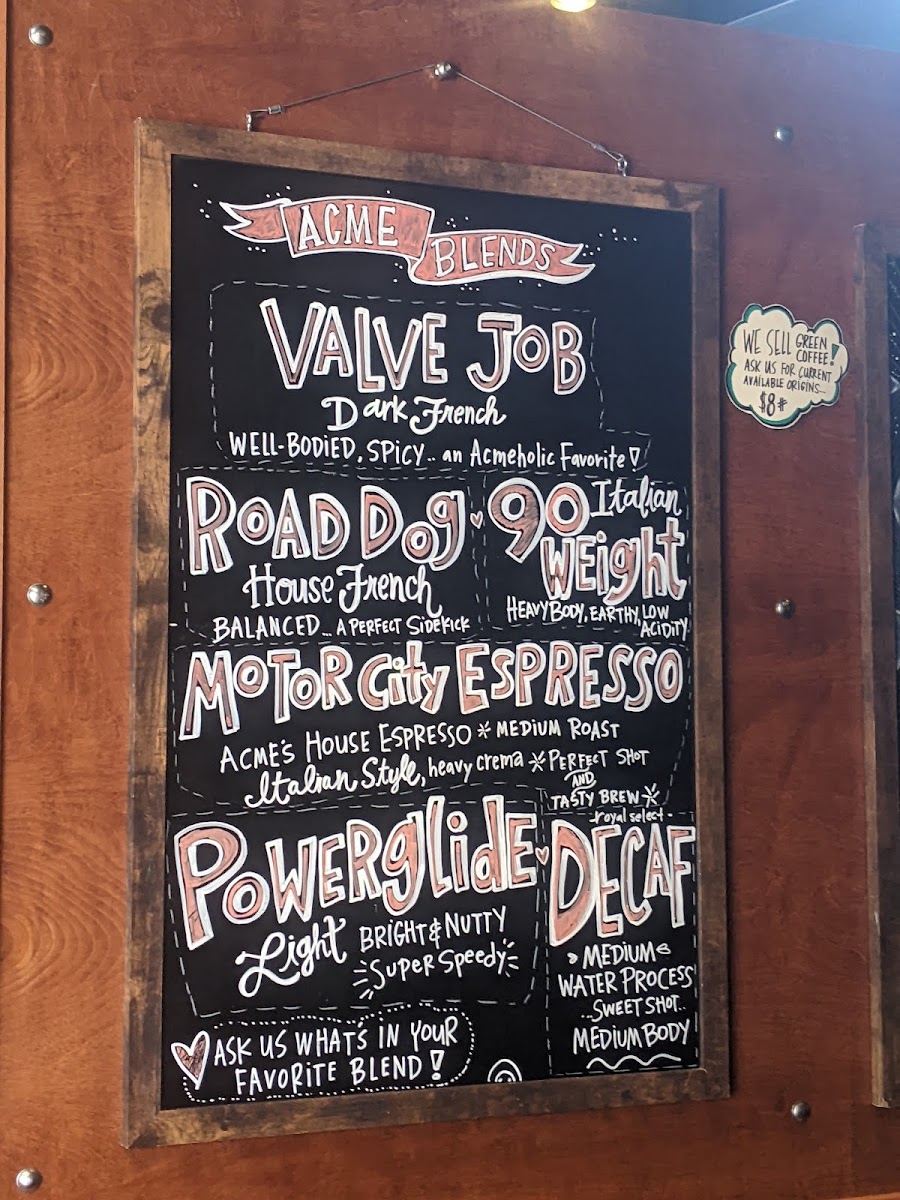 ACME
BLENDS
VALVE JOB
Dark French
WELL-BODIED, SPICY.. an Acmeholic Favorite!
ROAD DOG
House French
BALANCED... A PERFECT SIDEKICK
90 Italian
WEight
HEAVY BODY, EARTHY, LOW
ACIDITY
MOTOR City ESPRESSO
ACME'S HOUSE ESPRESSO * MEDIUM ROAST
Italian Style, heavy crema * PERFECT SHOT
AND
TASTY BREW *
POWERglidE
Light BRIGHT & NUTTY
Super Speedy
- royal select -
DECAF
MEDIUM
WATER PROCESS
..SWEET SHOT..
MEDIUM BODY
ASK US WHAT'S IN YOUR
FAVORITE BLEND!
WE SELL GREEN
COFFEE!
ASK US FOR CURRENT
AVAILABLE ORIGINS...
$8#